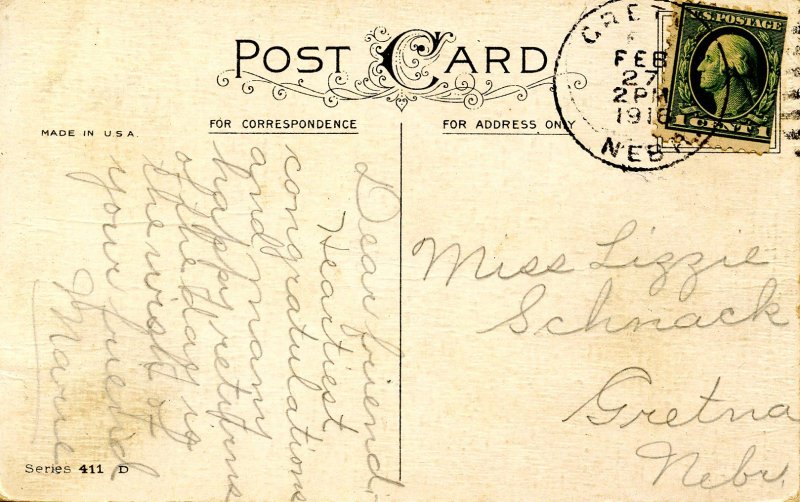 POST CARD
FOR CORRESPONDENCE
FOR ADDRESS ONLY
MADE IN U.S.A.
GRETNA
FEB
27
2PM
1916
NEBR.
U.S. POSTAGE
1 CENT 1
Dear friend,
Heartiest
congratulations
and many
happy returns
of the day is
the wish of
your friend
Marie
Miss Lizzie
Schnack
Gretna
Nebr.
Series 411 D